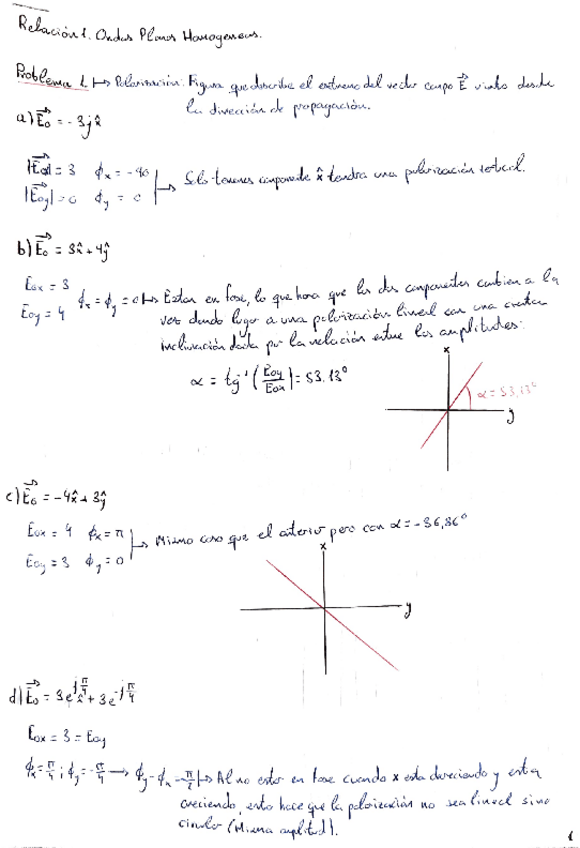 Relación 1. Ondas Planas Homogeneas.
Problema 1. ↦ Polarización: Figura que describe el extremo del vector campo E⃗ visto desde
la dirección de propagación.
a) E⃗₀ = -3j x̂
|E⃗ox| = 3 ϕx = -90
|E⃗oy| = 0 ϕy = 0
Solo tenemos componente x̂ tendra una polarización vertical.
b) E⃗₀ = 3x̂ + 4ŷ
Eox = 3
Eoy = 4
ϕx = ϕy = 0 ↦ Estan en fase, lo que hara que las dos componentes cambien a la
vez dando lugar a una polarización lineal con una cierta
inclinación dada por la relación entre las amplitudes:
α = tg⁻¹(Eoy/Eox) = 53.13°
x
α = 53,13°
y
c) E⃗₀ = -4x̂ + 3ŷ
Eox = 4 ϕx = π
Eoy = 3 ϕy = 0
Mismo caso que el anterior pero con α = -36,86°
x
y
d) E⃗₀ = 3e^{jπ/4} x̂ + 3e^{-jπ/4}
Eox = 3 = Eoy
ϕx = π/4 ; ϕy = -π/4 → ϕy - ϕx - π/2 ↦ Al no estar en fase cuando x esta decreciendo y esta
creciendo, esto hace que la polarización no sea lineal sino
circular (Misma amplitud).
1